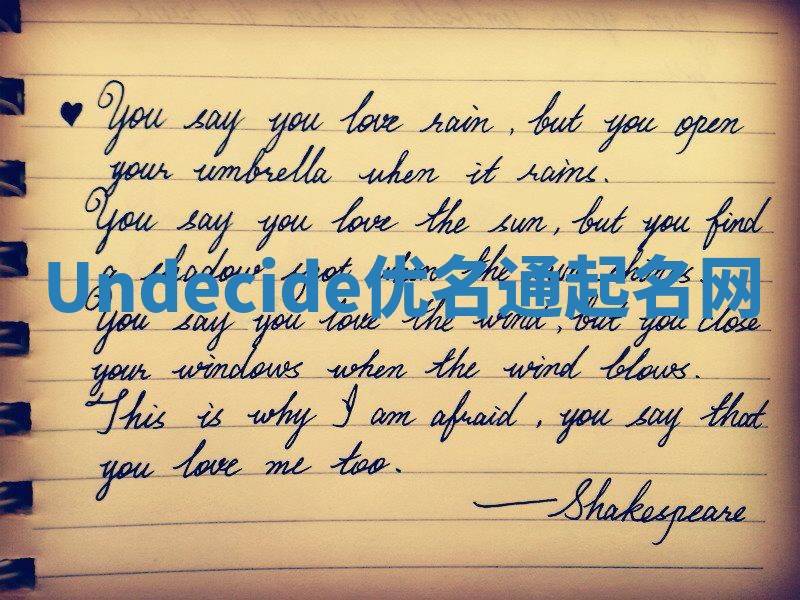 ♥ You say you love rain, but you open
your umbrella when it rains.
You say you love the sun, but you find
a shadow spot when the sun shines.
Undecide优名通起名网
You say you love the wind, but you close
your windows when the wind blows.
This is why I am afraid, you say that
you love me too.
—Shakespeare